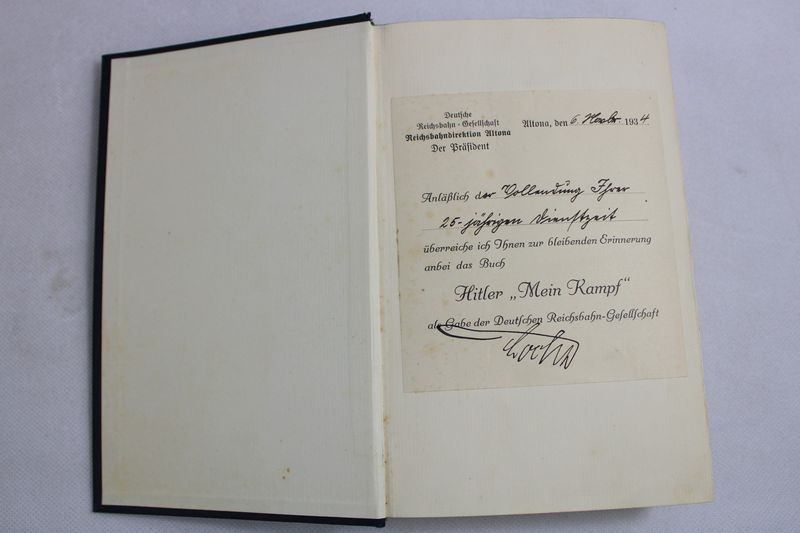 Deutsche
Reichsbahn-Gesellschaft
Reichsbahndirektion Altona
Der Präsident
Altona, den 6. Novbr. 1934
Anläßlich der Vollendung Ihrer
25-jährigen Dienstzeit
überreiche ich Ihnen zur bleibenden Erinnerung
anbei das Buch
Hitler „Mein Kampf“
als Gabe der Deutschen Reichsbahn-Gesellschaft